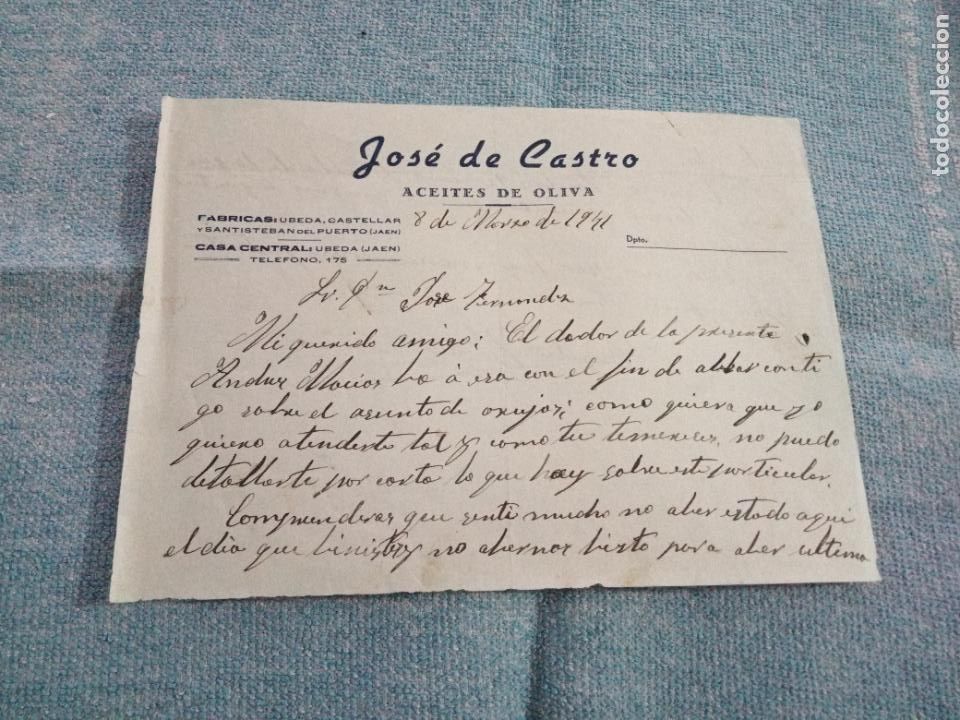 José de Castro
ACEITES DE OLIVA
FABRICAS: UBEDA, CASTELLAR
Y SANTISTEBAN DEL PUERTO (JAEN)
CASA CENTRAL: UBEDA (JAEN)
TELEFONO, 175
8 de Marzo de 1941
Dpto.
Sr. Dn Jose Fernandez
Mi querido amigo: El dador de la presente
Andres Macias ba á esa con el fin de ablar conti
go sobre el asunto de orujos; como quiera que yo
quiero atenderte tal y como tu te mereces, no puedo
detallarte por carta lo que hay sobre este particular.
Comprenderas que senti mucho no aber estado aqui
el dia que binistes y no abernos bisto para aber ultima
todocoleccion.com